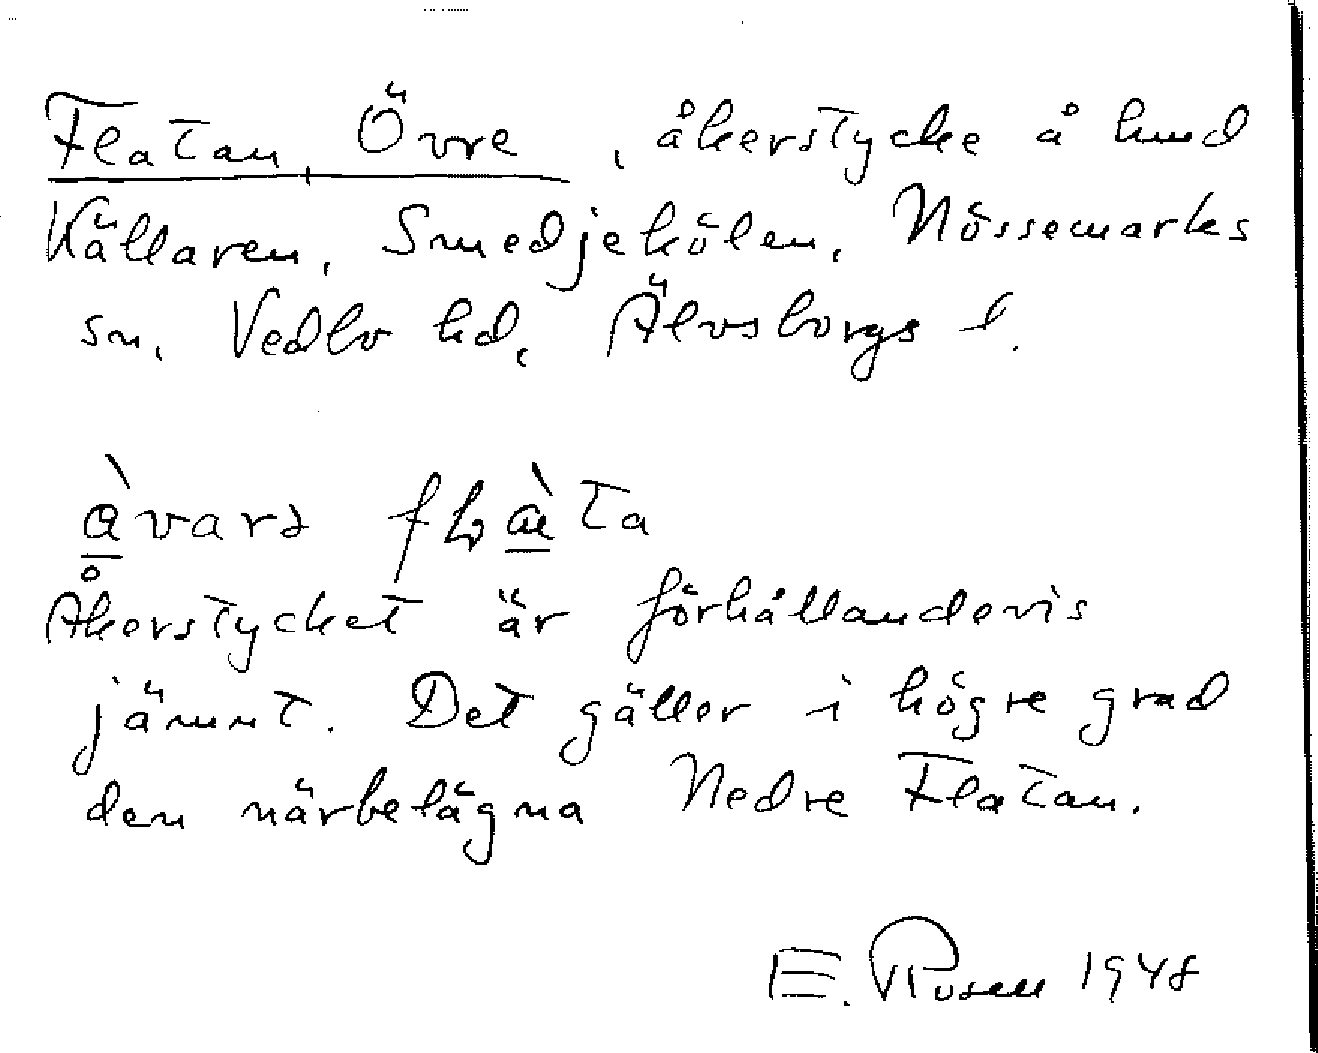 Flatan, Övre, åkerstycke å hmd
Källaren, Smedjekölen, Nössemarks
sn, Vedbo hd, Älvsborgs l.
àvarə flàta
Åkerstycket är förhållandevis
jämnt. Det gäller i högre grad
den närbelägna Nedre Flatan.
E. Rosen 1948